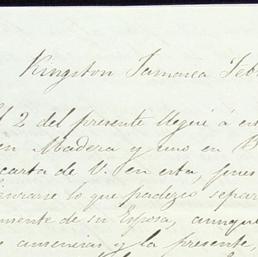 Kingston Jamaica Feb
El 2 del presente llegué á es
en Madera y uno en B
carta de V. en esta, pues
lo que padezco separ
mente de su Esposa, aunque
ausencias y la presente,